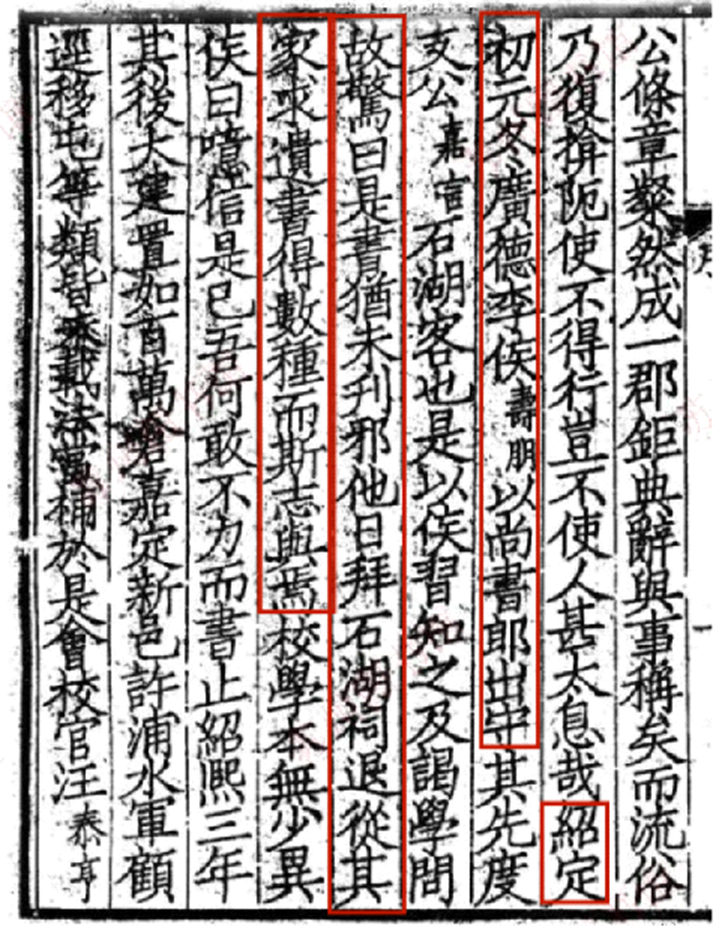 公條章粲然成一郡鉅典辭與事稱矣而流俗
乃復揜阨使不得行豈不使人甚太息哉紹定
初元冬廣德李侯壽朋以尚書郎出守其先度
支公嘉言石湖客也是以侯習知之及謁學問
故驚曰是書猶未刋邪他日拜石湖祠退從其
家求遺書得數種而斯志與焉校學本無少異
侯曰噫信是已吾何敢不力而書止紹熙三年
其後大建置如百萬倉嘉定新邑許浦水軍顧
逕移屯等類皆未載法當補於是會校官汪泰亨